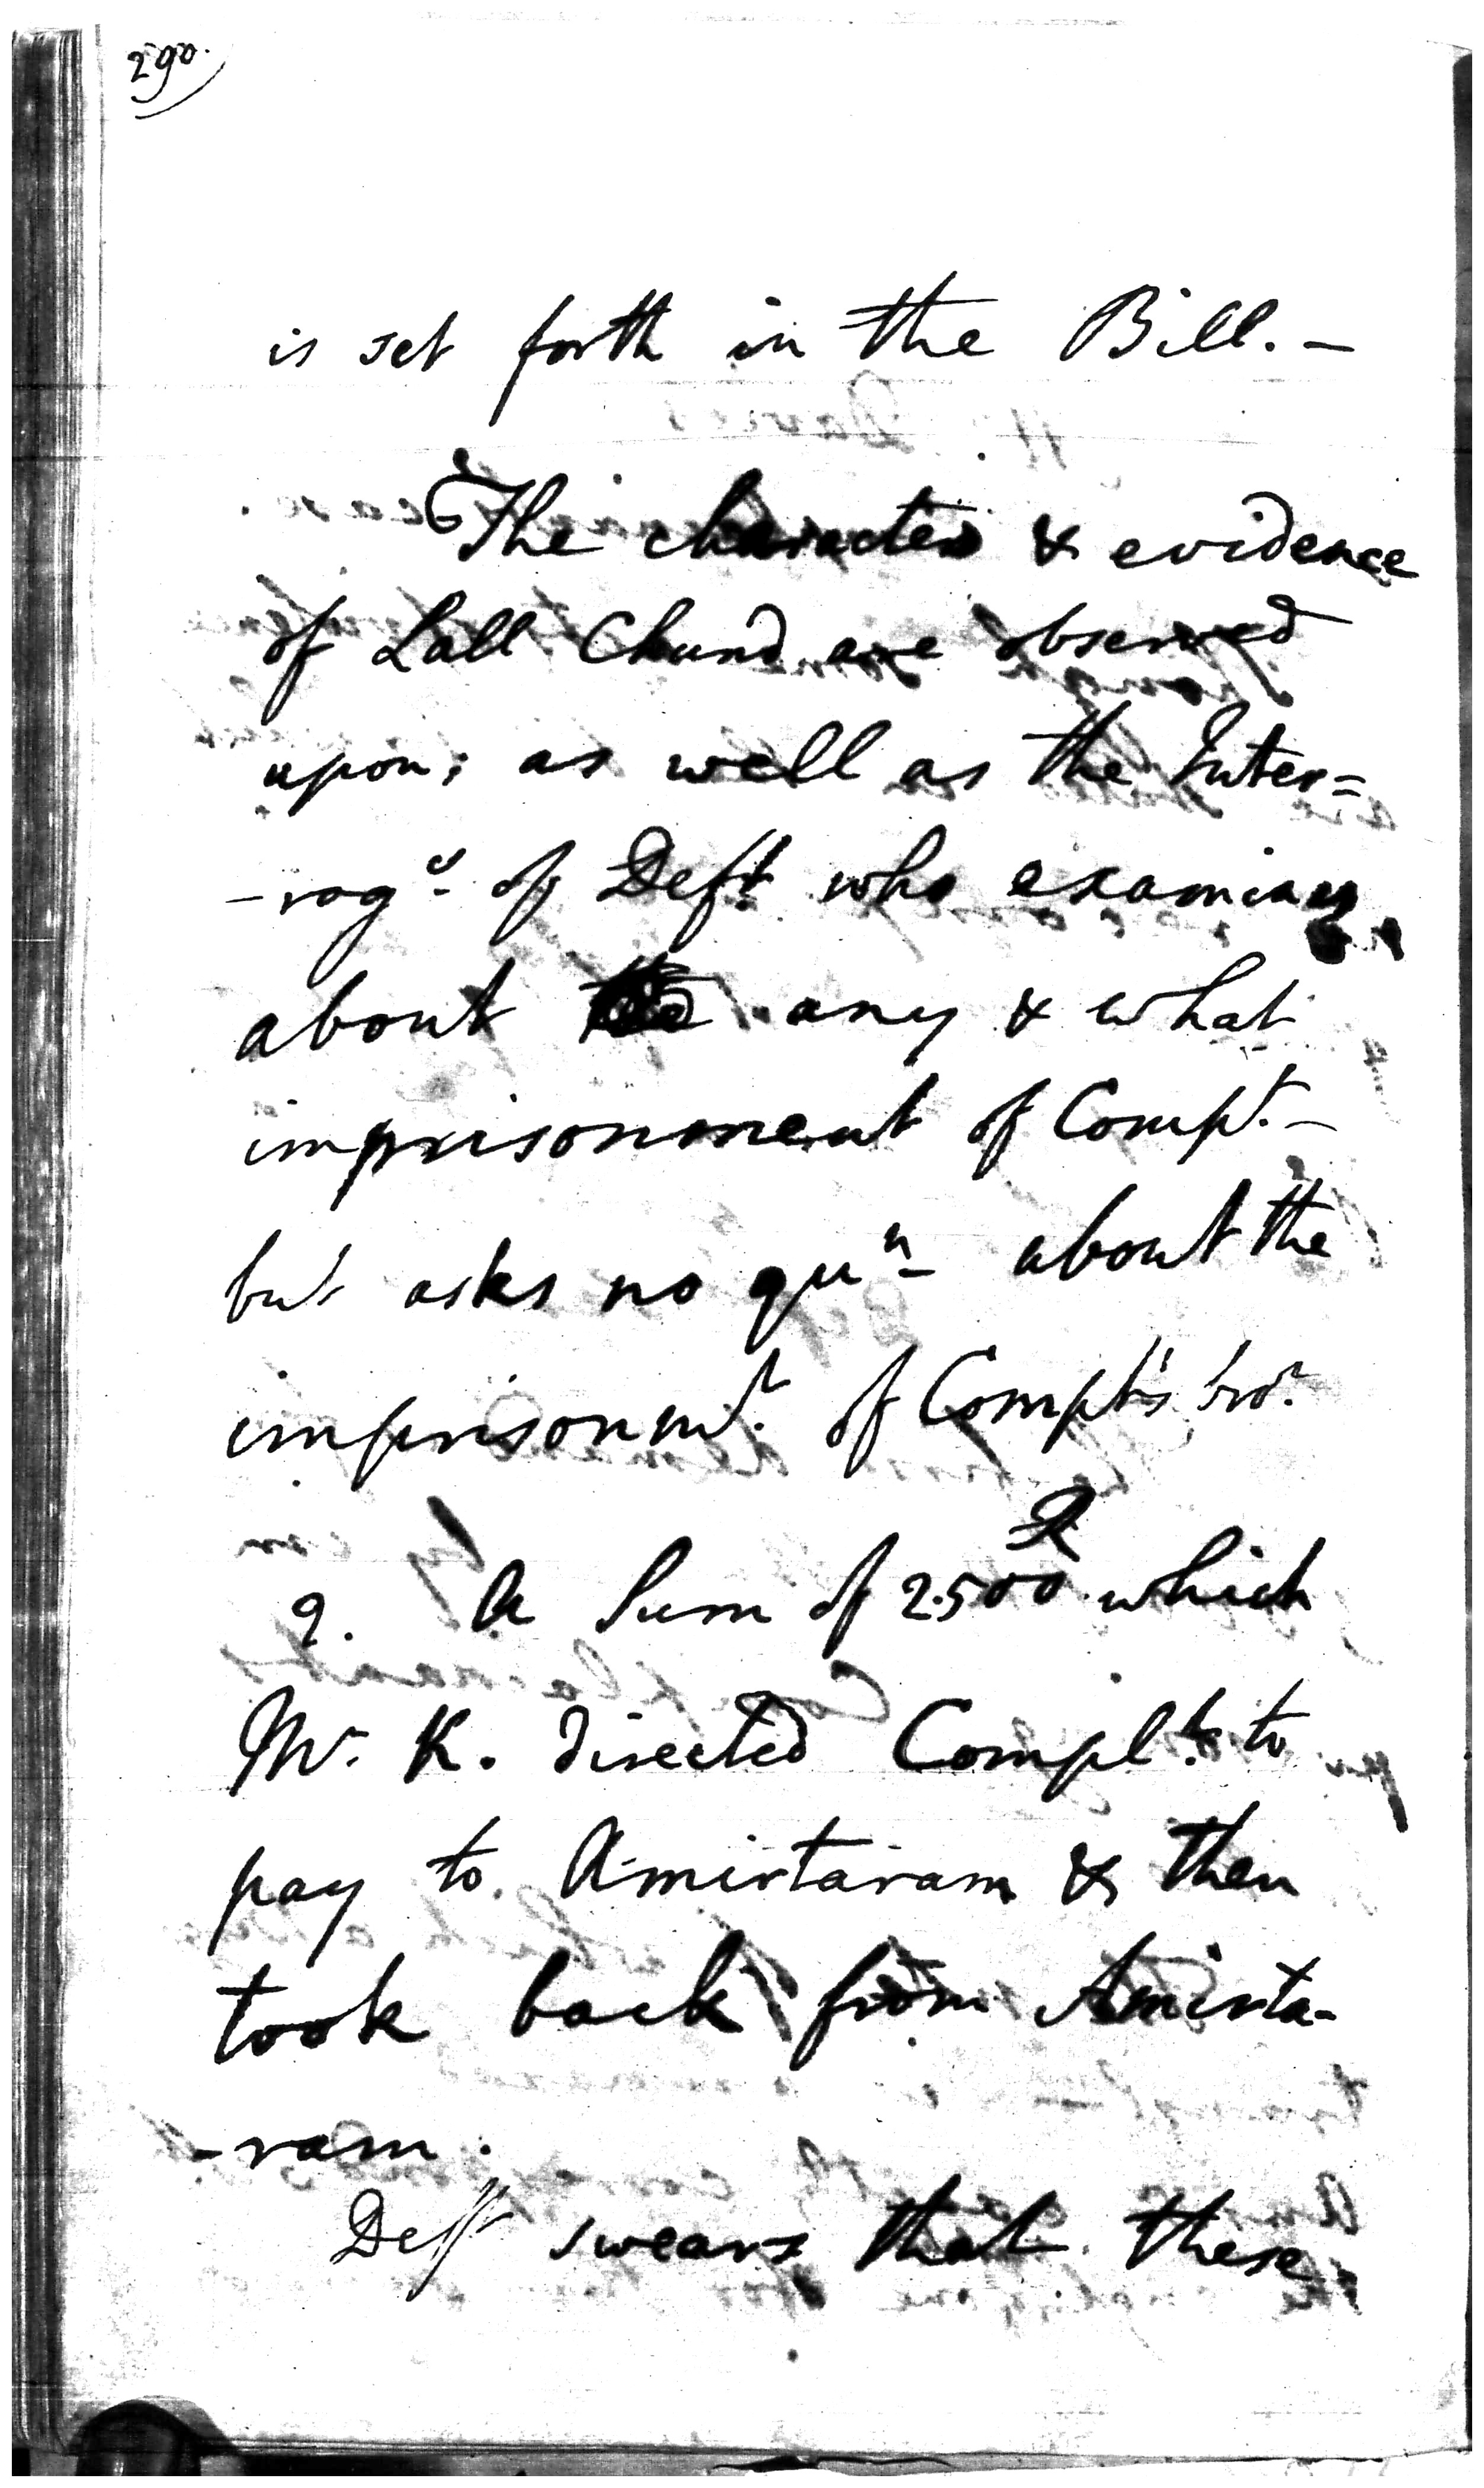 290.
is set forth in the Bill. —
The character & evidence
of Lall Chund are observed
upon; as well as the Inter=
-rogs. of Deft. who examines
about any & what
imprisonment of Compt. —
but asks no qun. about the
imprisonmt. of Compt's bror.
2. A Sum of 2.500 R which
Mr. K. directed Complt. to
pay to Amirtaram & then
took back from Amirta-
-ram.
Deft swears that these